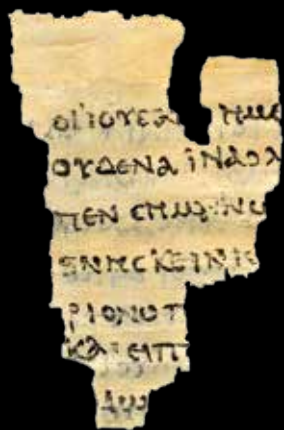 ΟΙ ΙΟΥΔΑ ΗΜΕ
ΟΥΔΕΝΑ ΙΝΑ Ο Λ
ΠΕΝ CΗΜΑΙΝΩ
ΘΝΗCΚΕΙΝ ΙC
ΡΙΟΝ Ο Π
ΚΑΙ ΕΙΠ
ΑΙΩ